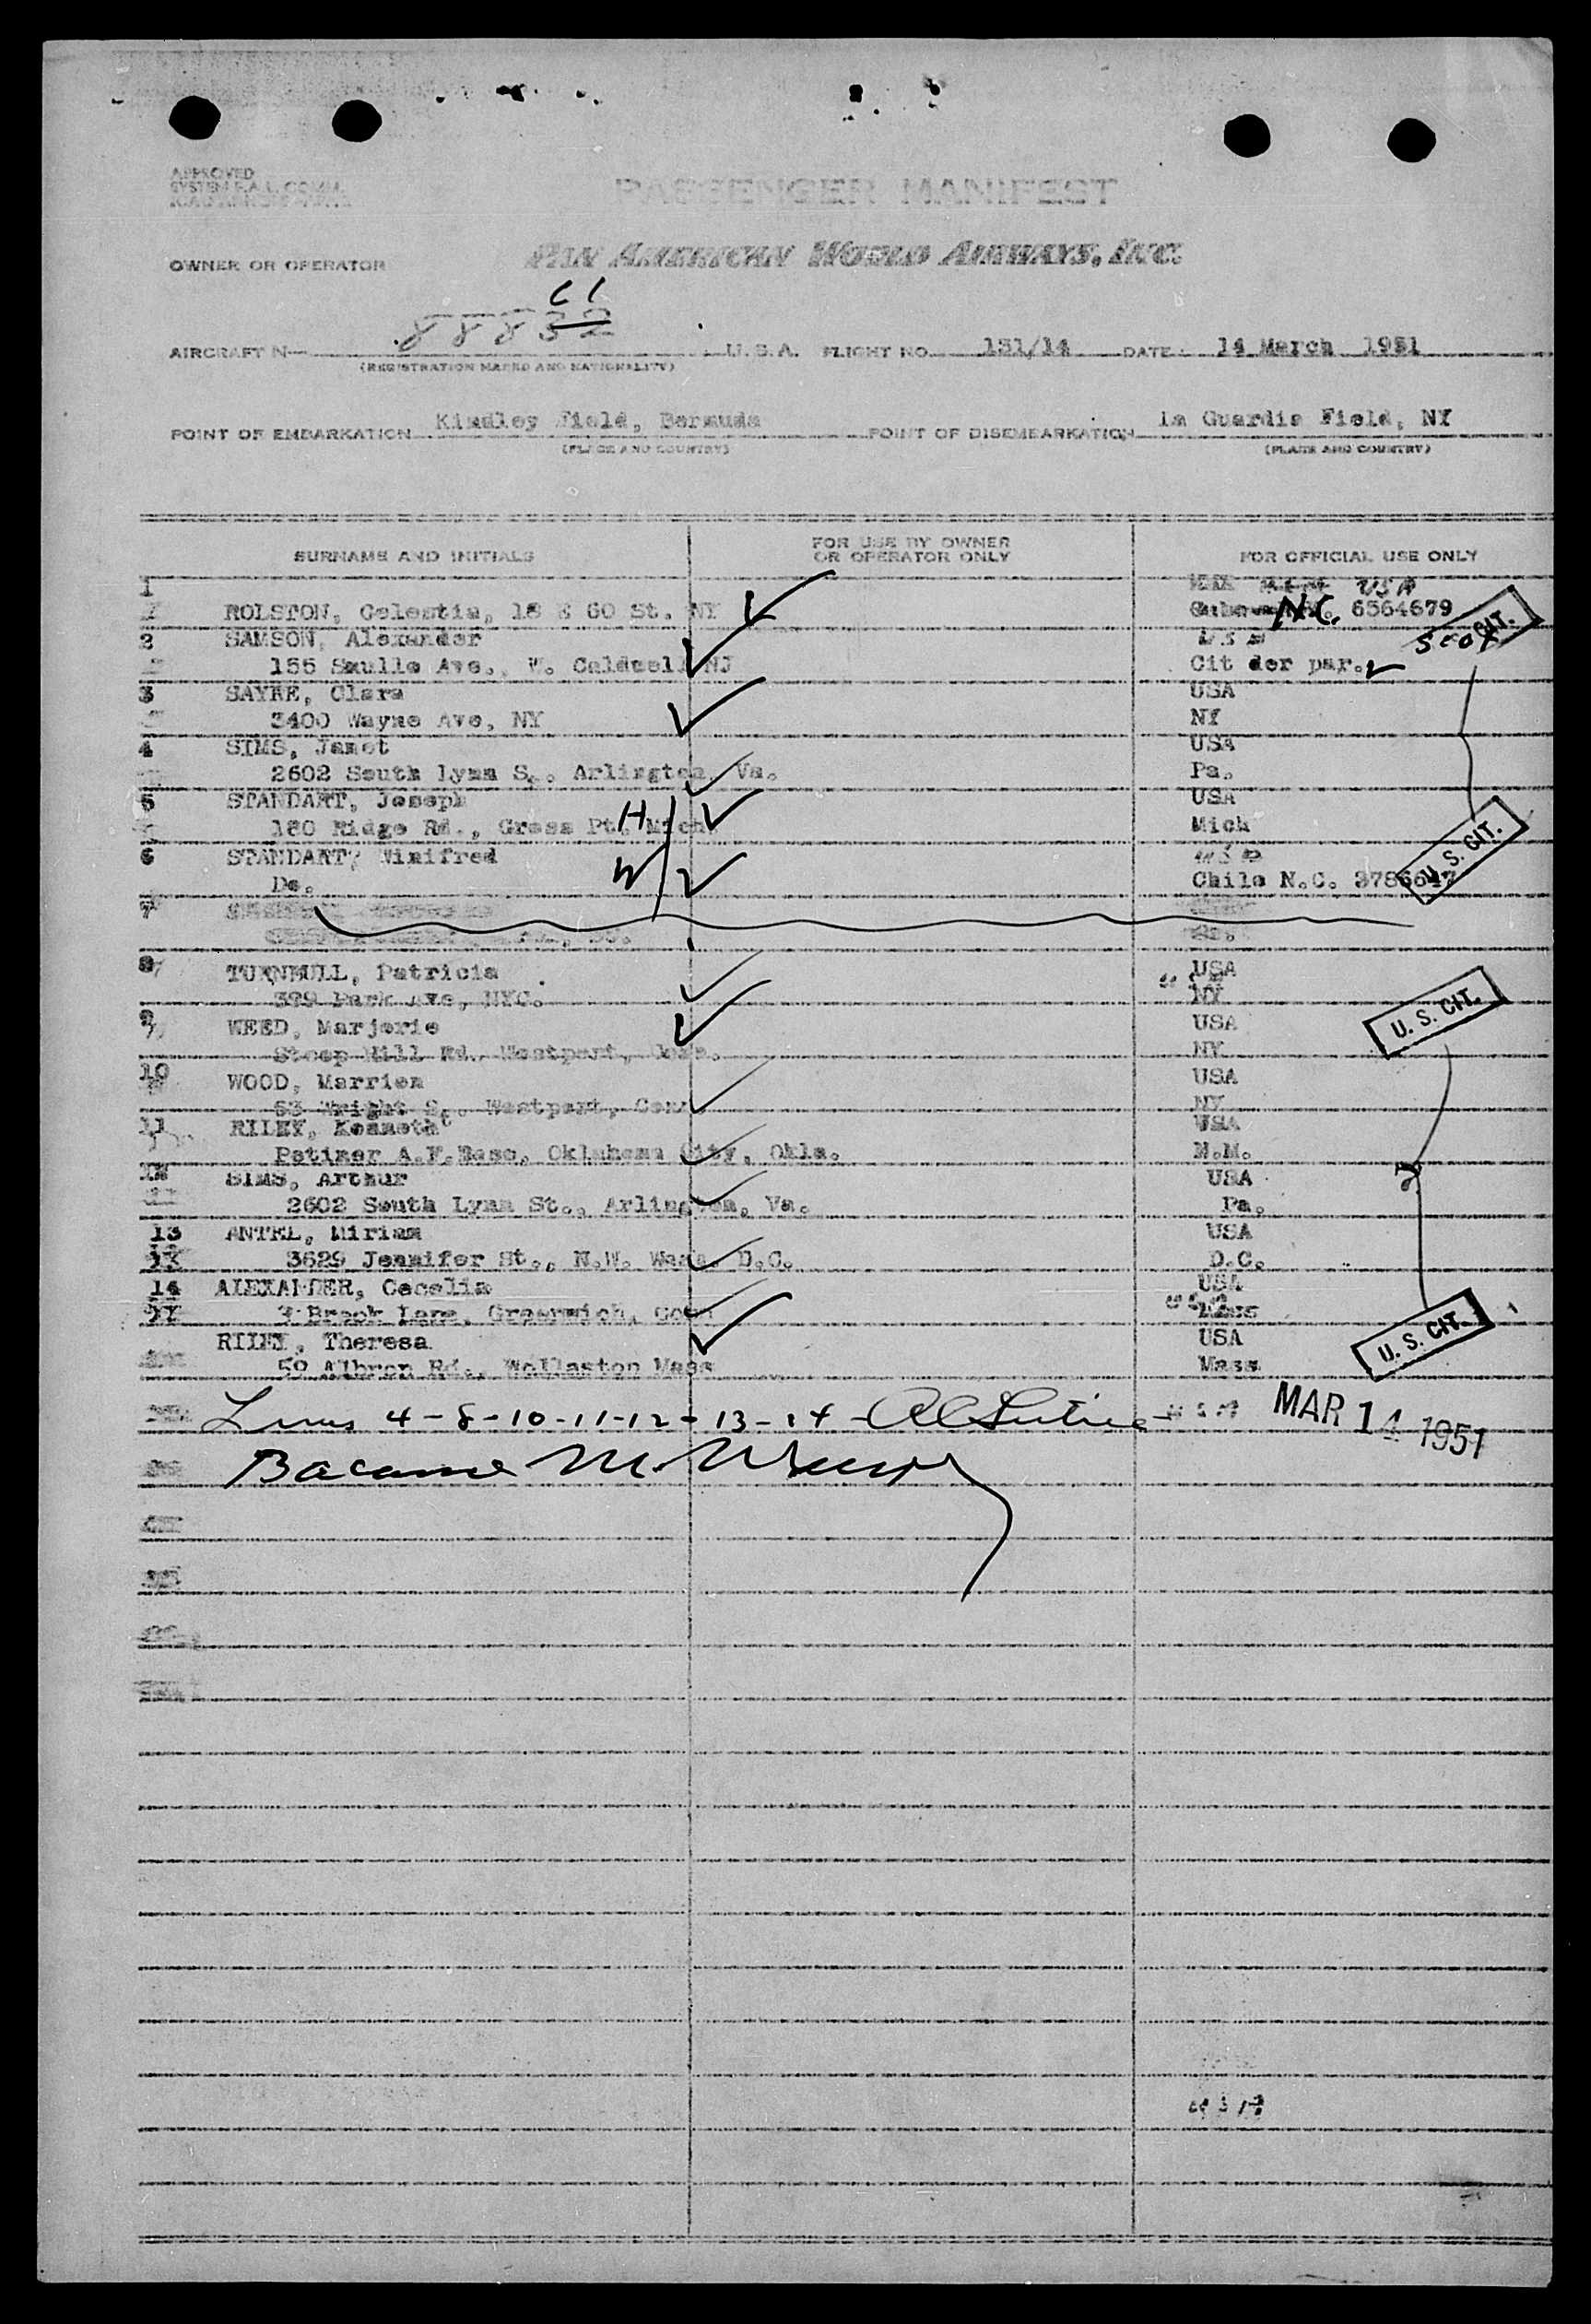 APPROVED
SYSTEM F.A.L. COMM.
PASSENGER MANIFEST
OWNER OR OPERATOR PAN AMERICAN WORLD AIRWAYS, INC.
61
AIRCRAFT N— 88832 U.S.A. FLIGHT NO. 131/14 DATE 14 March 1951
(REGISTRATION MARKS AND NATIONALITY)
POINT OF EMBARKATION Kindley Field, Bermuda POINT OF DISEMBARKATION La Guardia Field, NY
(PLACE AND COUNTRY) (PLACE AND COUNTRY)
SURNAME AND INITIALS FOR USE BY OWNER OR OPERATOR ONLY FOR OFFICIAL USE ONLY
1 USA
ROLSTON, Celestia, 18 E 60 St. NY N.C. 6564679 CIT.
2 SAMSON, Alexander USA Scot
155 Smulle Ave., W. Caldwell NJ Cit der par.
3 SAYRE, Clara USA
3400 Wayne Ave, NY NY
4 SIMS, Janet USA
2602 South Lynn St. Arlington, Va. Pa.
5 STANDART, Joseph H USA
180 Ridge Rd., Gross Pt. Mich. Mich
6 STANDART, Winifred W USA U. S. CIT.
Do. Chile N.C. 3786647
7
8 TURNBULL, Patricia USA
399 Park Ave, NYC. NY
9 WEED, Marjorie USA U. S. CIT.
Steep Mill Rd. Westport, Conn. NY
10 WOOD, Marrien USA
53 Wright St. Westport, Conn NY
11 RILEY, Kenneth USA
Patimer A.F.Base, Oklahoma City, Okla. N.M.
12 SIMS, Arthur USA
2602 South Lynn St., Arlington, Va. Pa.
13 ANTEL, Miriam USA
3629 Jennifer St., N.W. Wash. D.C. D.C.
14 ALEXANDER, Cecelia USA
3 Brook Lane, Greenwich, Conn Mass
RILEY, Theresa USA U. S. CIT.
59 Albren Rd., Wollaston Mass Mass
Lines 4-8-10-11-12-13-14- USA MAR 14 1951
USA